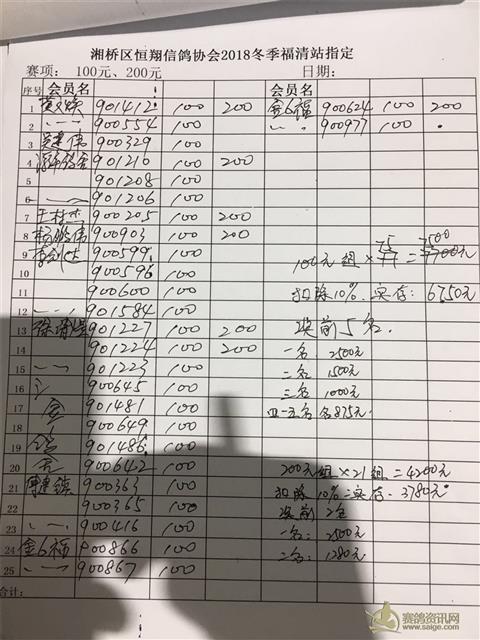 湘桥区恒翔信鸽协会2018冬季福清站指定
赛项： 100元、200元 日期：
序号 会员名 会员名
1 901412 100 200 金6福 900624 100 200
2 900554 100 900977 100
3 吴建伟 900329 100
4 901216 100 200
5 901208 100
6 901206 100
7 900205 100 200
8 杨 伟 900903 100 200
9 李剑 900599 100 100元组×75=7500
10 900596 100
11 900600 100 扣除10%.实存:6750元
12 901584 100
13 徐 901227 100 200 奖前5名.
14 901224 100 200 一名 2500元
15 901223 100 二名 1500元
16 900645 100 三名 1000元
17 金 901481 100 四一五名各875元
18 900649 100
19 901486 100
20 900642 100 200元组×21组=4200元
21 900363 100 扣除10%=实存:3780元
22 900365 100 奖前2名
23 900416 100 一名:2500元
24 金6福 900866 100 二名:1280元
25 900867 100
合计:
赛鸽资讯网
www.saige.com